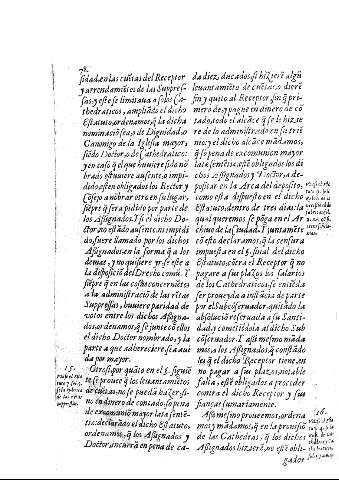 78.
sidad, en las cuētas del Receptor
y arrendamiētos de las Suppres-
sas, y este se limitaua a solos Ca-
thedraticos, ampliādo el dicho
Estatuto, ordenamos, q̄ la dicha
nominaciō sea, o de Dignidad, o
Canonigo de la Iglesia mayor,
siēdo Doctor, o de Cathedratico:
y en caso q̄ el que huuiere sido nō
brado estuuiere ausente, o impi-
dido, estēn obligados los Rector y
Cōsejo a nōbrar otro en su lugar,
siēpre q̄ sera pidido por parte de
los Assignados. Y si el dicho Do-
ctor, no estādo ausente, ni impidi
do, fuere llamado por los dichos
Assignados, en la forma q̄ a los
demas, y no quisiere yr, se este a
la disposiciō del Drecho comū. Y
siēpre q̄ en las cosas concerniētes
a la administraciō de las ritas
Suppressas, huuiere paridad de
votos entre los dichos Assigna-
dos, ordenamos, q̄ se junte cō ellos
el dicho Doctor nombrado, y la
parte a que adhereciere, sea aui
da por mayor.
15.
Otrosi por quāto en el §. siguiē
te, se prouee q̄ los leuantamiētos
de cuētas, no se pueda hazer, si-
no en dinero de contado, so pena
de excomuniō mayor latæ sentē-
tiæ: declarādo el dicho Estatuto,
ordenamos, q̄ los Assignados y
Doctor, incurrā en pena de ca-
da diez, ducados, si hizierē algū
leuantamiēto de cuētas, o dierē
fin y quito al Receptor, sin q̄ pri-
mero de y pague en dinero de cō
tado, todo el alcāce q̄ se le hizie-
re de lo administrado en su triē-
nio; y el dicho alcāce mādamos,
q̄ so pena de excomunion mayor
latæ sētētiæ, estē obligados los di
chos Assignados y Doctor, a de-
positar en la Arca del deposito,
como esta dispuesto en el dicho
Estatuto, dentro de tres dias: la
qual queremos se pōga en el Ar
chiuo de la ciudad. Y juntamēte
cō esto declaramos, q̄ la censura
impuesta en el §. final del dicho
Estatuto, cōtra el Receptor q̄ no
pagare a sus plazos los salarios
de los Cathedraticos, se entiēda
ser proueyda a instācia de parte
por el Subcōseruador, quitādo la
absoluciō reseruada a su Santi-
dad, y cometiēdola al dicho Sub
cōseruador. Y assi mesmo māda
mos, a los Assignados, q̄ constādo
les q̄ el dicho Receptor tiene, en
no pagar a sus plazos, notable
falta, estē obligados a proceder
contra el dicho Receptor y sus
fianças sumariamente.
16.
Assi mesmo proueemos, ordena
mos y mādamos, q̄ en la prouisiō
de las Cathedras, q̄ los dichos
Assignados hiziere, no estē obli
gados